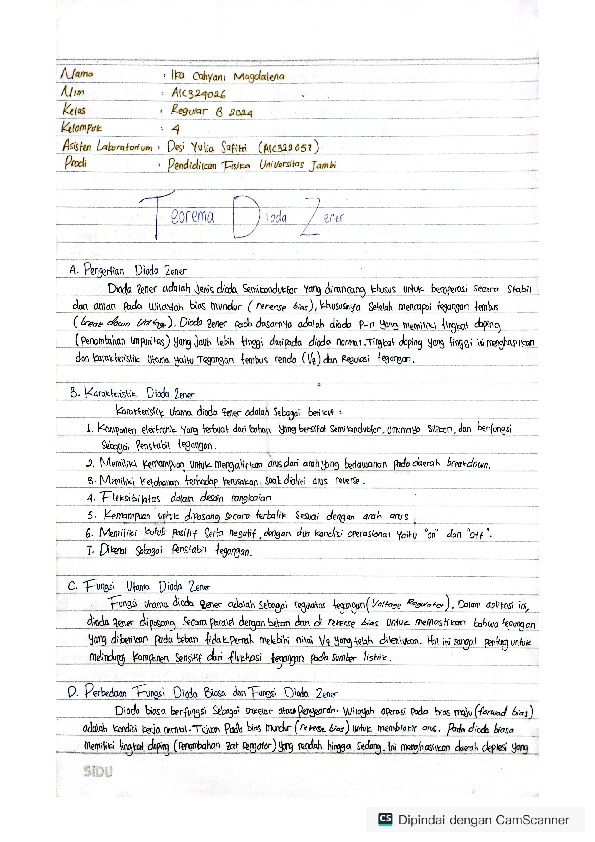 Nama : Ika Cahyani Magdalena
Nim : A1C324026
Kelas : Regular B 2024
Kelompok : 4
Asisten Laboratorium : Desi Yulia Safitri (A1C322057)
Prodi : Pendidikan Fisika Universitas Jambi
Teorema Dioda Zener
A. Pengertian Dioda Zener
Dioda Zener adalah jenis dioda semikonduktor yang dirancang khusus untuk beroperasi secara stabil
dan aman pada wilayah bias mundur (reverse bias), khususnya setelah mencapai tegangan tembus
(break down Voltage). Dioda Zener pada dasarnya adalah dioda P-n yang memiliki tingkat doping
(Penambahan impuritas) yang jauh lebih tinggi daripada dioda normal. Tingkat doping yang tinggi ini menghasilkan
dan karakteristik utama yaitu Tegangan tembus renda (Vz) dan Regulasi tegangan.
B. Karakteristik Dioda Zener
Karakteristik utama dioda zener adalah sebagai berikut :
1. Komponen elektronik yang terbuat dari bahan yang bersifat semikonduktor, umumnya silicon, dan berfungsi
sebagai penstabil tegangan.
2. Memiliki kemampuan untuk mengalirkan arus dari arah yang berlawanan pada daerah breakdown.
3. Memiliki ketahanan terhadap kerusakan saat dialiri arus reverse.
4. Fleksibilitas dalam desain rangkaian
5. Kemampuan untuk dipasang secara terbalik sesuai dengan arah arus
6. Memiliki kutub positif serta negatif, dengan dua kondisi operasional yaitu "on" dan "off".
7. Dikenal sebagai penstabil tegangan.
C. Fungsi Utama Dioda Zener
Fungsi utama dioda zener adalah sebagai regulator tegangan (Voltage Regulator). Dalam aplikasi ini,
dioda zener dipasang secara paralel dengan beban dan di reverse bias untuk memastikan bahwa tegangan
yang diberikan pada beban tidak pernah melebihi nilai Vz yang telah ditentukan. Hal ini sangat penting untuk
melindungi komponen sensitif dari fluktuasi tegangan pada sumber listrik.
D. Perbedaan Fungsi Dioda Biasa dan Fungsi Dioda Zener
Dioda biasa berfungsi sebagai saklar atau Pengearah. Wilayah operasi pada bias maju (forward bias)
adalah kondisi kerja normal. Tujuan Pada bias mundur (reverse bias) untuk memblokir arus. Pada dioda biasa
memiliki tingkat doping (Penambahan zat Pengotor) yang rendah hingga sedang. Ini menghasilkan daerah deplesi yang
SIDU
CS Dipindai dengan CamScanner